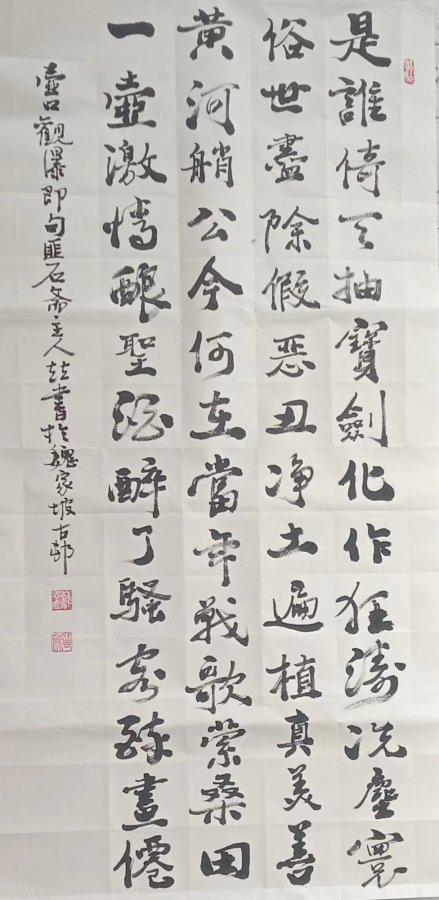 是誰倚天抽寶劍化作狂濤洗塵寰
俗世盡除假惡丑净土遍植真美善
黄河艄公今何在當年戰歌縈桑田
一壺激情釀聖酒醉了騷客酔畫僊
壺口觀瀑即句匪石斋主人書於魏家坡古邨